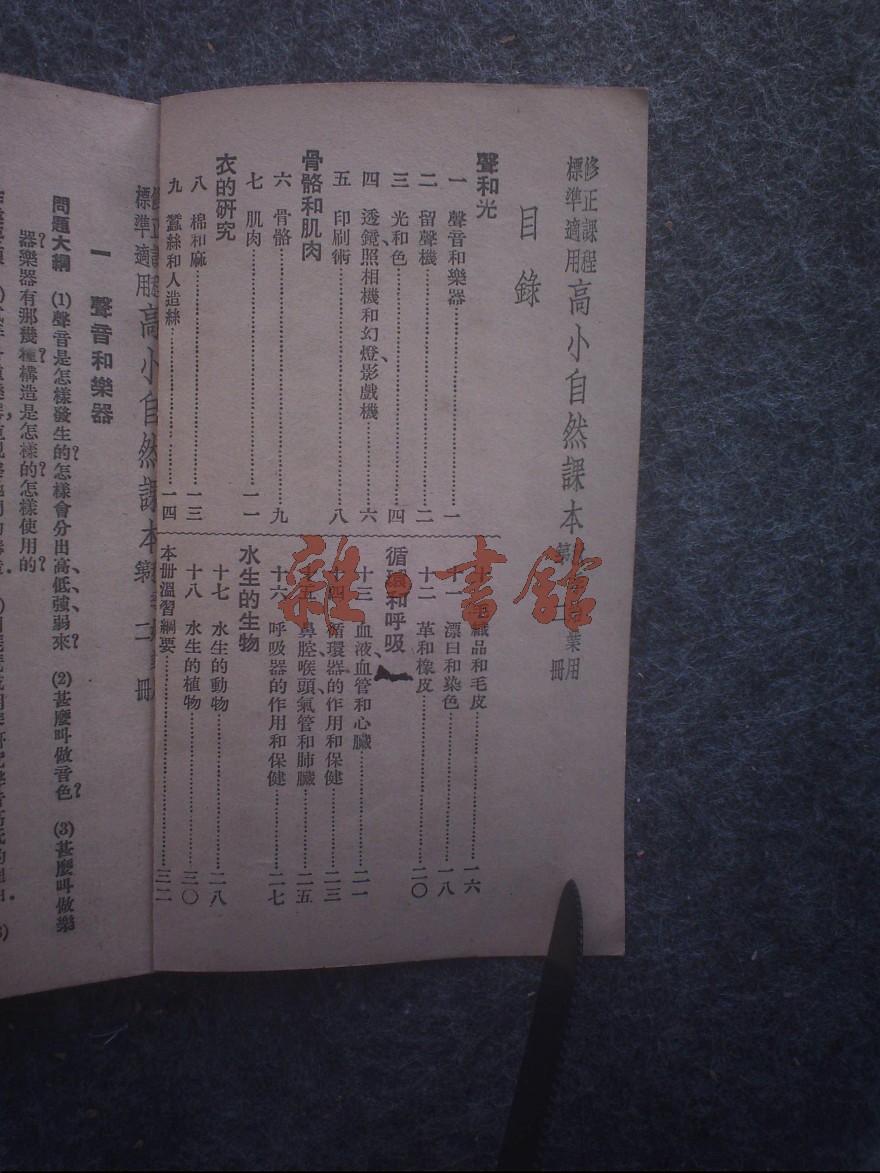 修正課程
標準適用
高小自然課本
第二冊
業用
目錄
聲和光
一 聲音和樂器……一
二 留聲機……二
三 光和色……四
四 透鏡、照相機和幻燈、影戲機……六
五 印刷術……八
骨骼和肌肉
六 骨骼……九
七 肌肉……一一
衣的研究
八 棉和麻……一三
九 蠶絲和人造絲……一四
十 毛織品和毛皮……一六
十一 漂白和染色……一八
十二 革和橡皮……二〇
循環和呼吸
十三 血液、血管和心臟……二一
十四 循環器的作用和保健……二三
十五 鼻腔、喉頭、氣管和肺臟……二五
十六 呼吸器的作用和保健……二七
水生的生物
十七 水生的動物……二八
十八 水生的植物……三〇
本冊溫習綱要……三二
雜·書館
修正課程
標準適用
高小自然課本
第二冊
一 聲音和樂器
問題大綱 (1)聲音是怎樣發生的?怎樣會分出高、低、強、弱來? (2)甚麼叫做音色? (3)甚麼叫做樂
器?樂器有那幾種?構造是怎樣的?怎樣使用的?